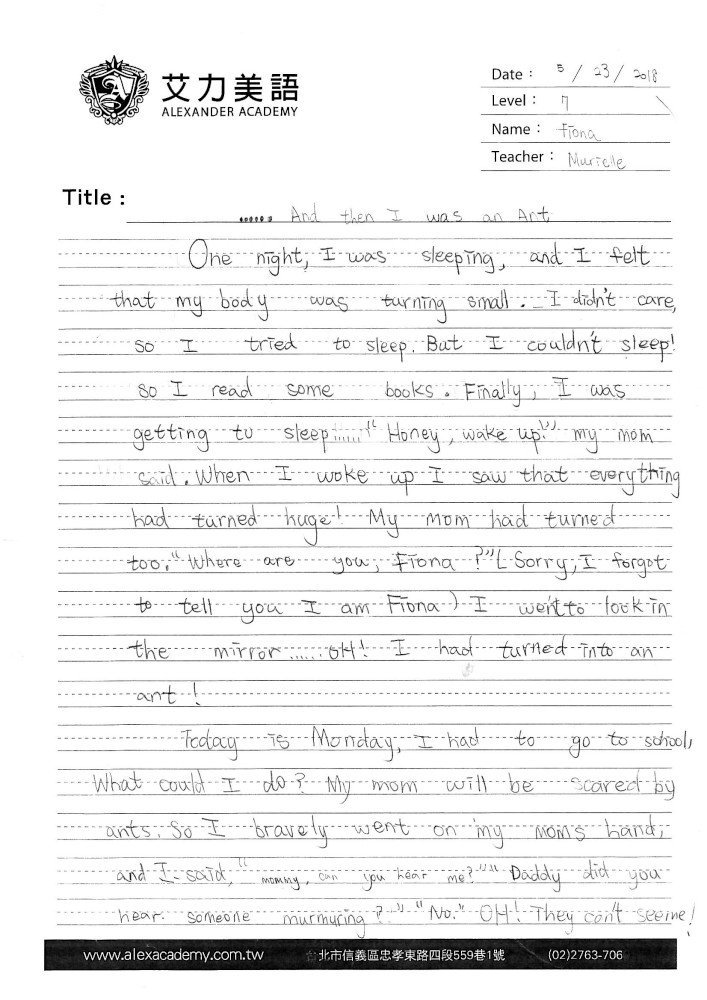 艾力美語
ALEXANDER ACADEMY
Date : 5 / 23 / 2018
Level : 7
Name : Fiona
Teacher : Murielle
Title :
...... And then I was an Ant
One night, I was sleeping, and I felt
that my body was turning small. I didn't care,
so I tried to sleep. But I couldn't sleep!
so I read some books. Finally, I was
getting to sleep......" Honey, wake up!" my mom
said. When I woke up I saw that everything
had turned huge! My mom had turned
too. "Where are you, Fiona ?" ( Sorry, I forgot
to tell you I am Fiona ) I went to look in
the mirror......OH! I had turned into an
ant !
Today is Monday, I had to go to school,
What could I do? My mom will be scared by
ants. So I bravely went on my mom's hand,
and I said, "mommy, can you hear me?" " Daddy did you
hear someone murmuring ? " "No." OH! They can't see me!
www.alexacademy.com.tw 台北市信義區忠孝東路四段559巷1號 (02)2763-706